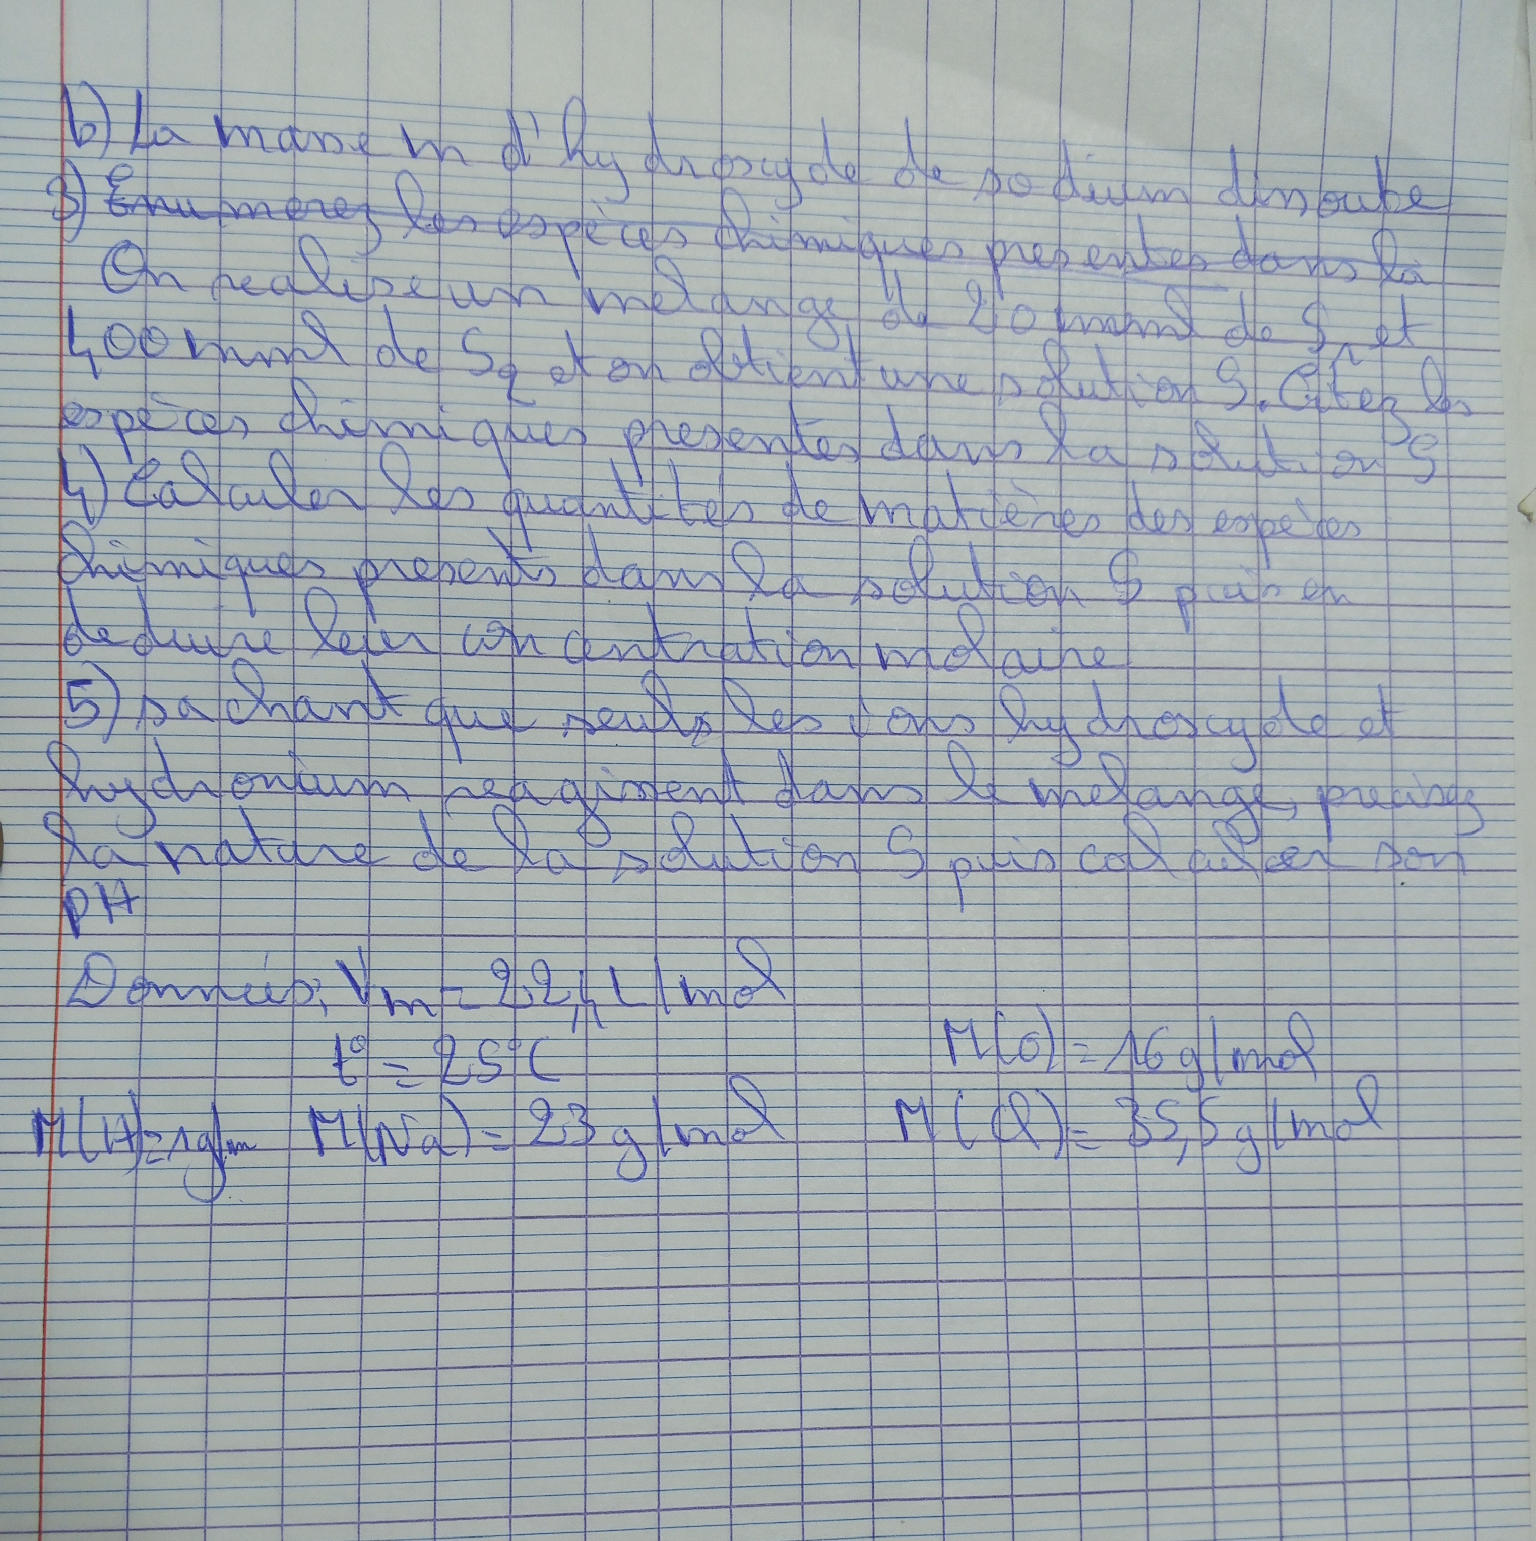 b) La masse m d'hydroxyde de sodium dissoute
3) Enumerez les espèces chimiques presentes dans la
On realise un melange de 20 mmol de S1 et
400 mmol de S2 et on obtient une solution S. Citez les
espèces chimiques presentes dans la solution S
4) Calculer les quantités de matières des espèces
chimiques presents dans la solution S puis en
deduire leur concentration molaire
5) sachant que seuls les ions hydroxyde et
hydronium reagissent dans le melange, precisez
la nature de la solution S puis calculer son
pH
Données; Vm = 22,4 L/mol
t° = 25°C
M(O) = 16 g/mol
M(H)=1g/m M(Na) = 23 g/mol M(Cl) = 35,5 g/mol